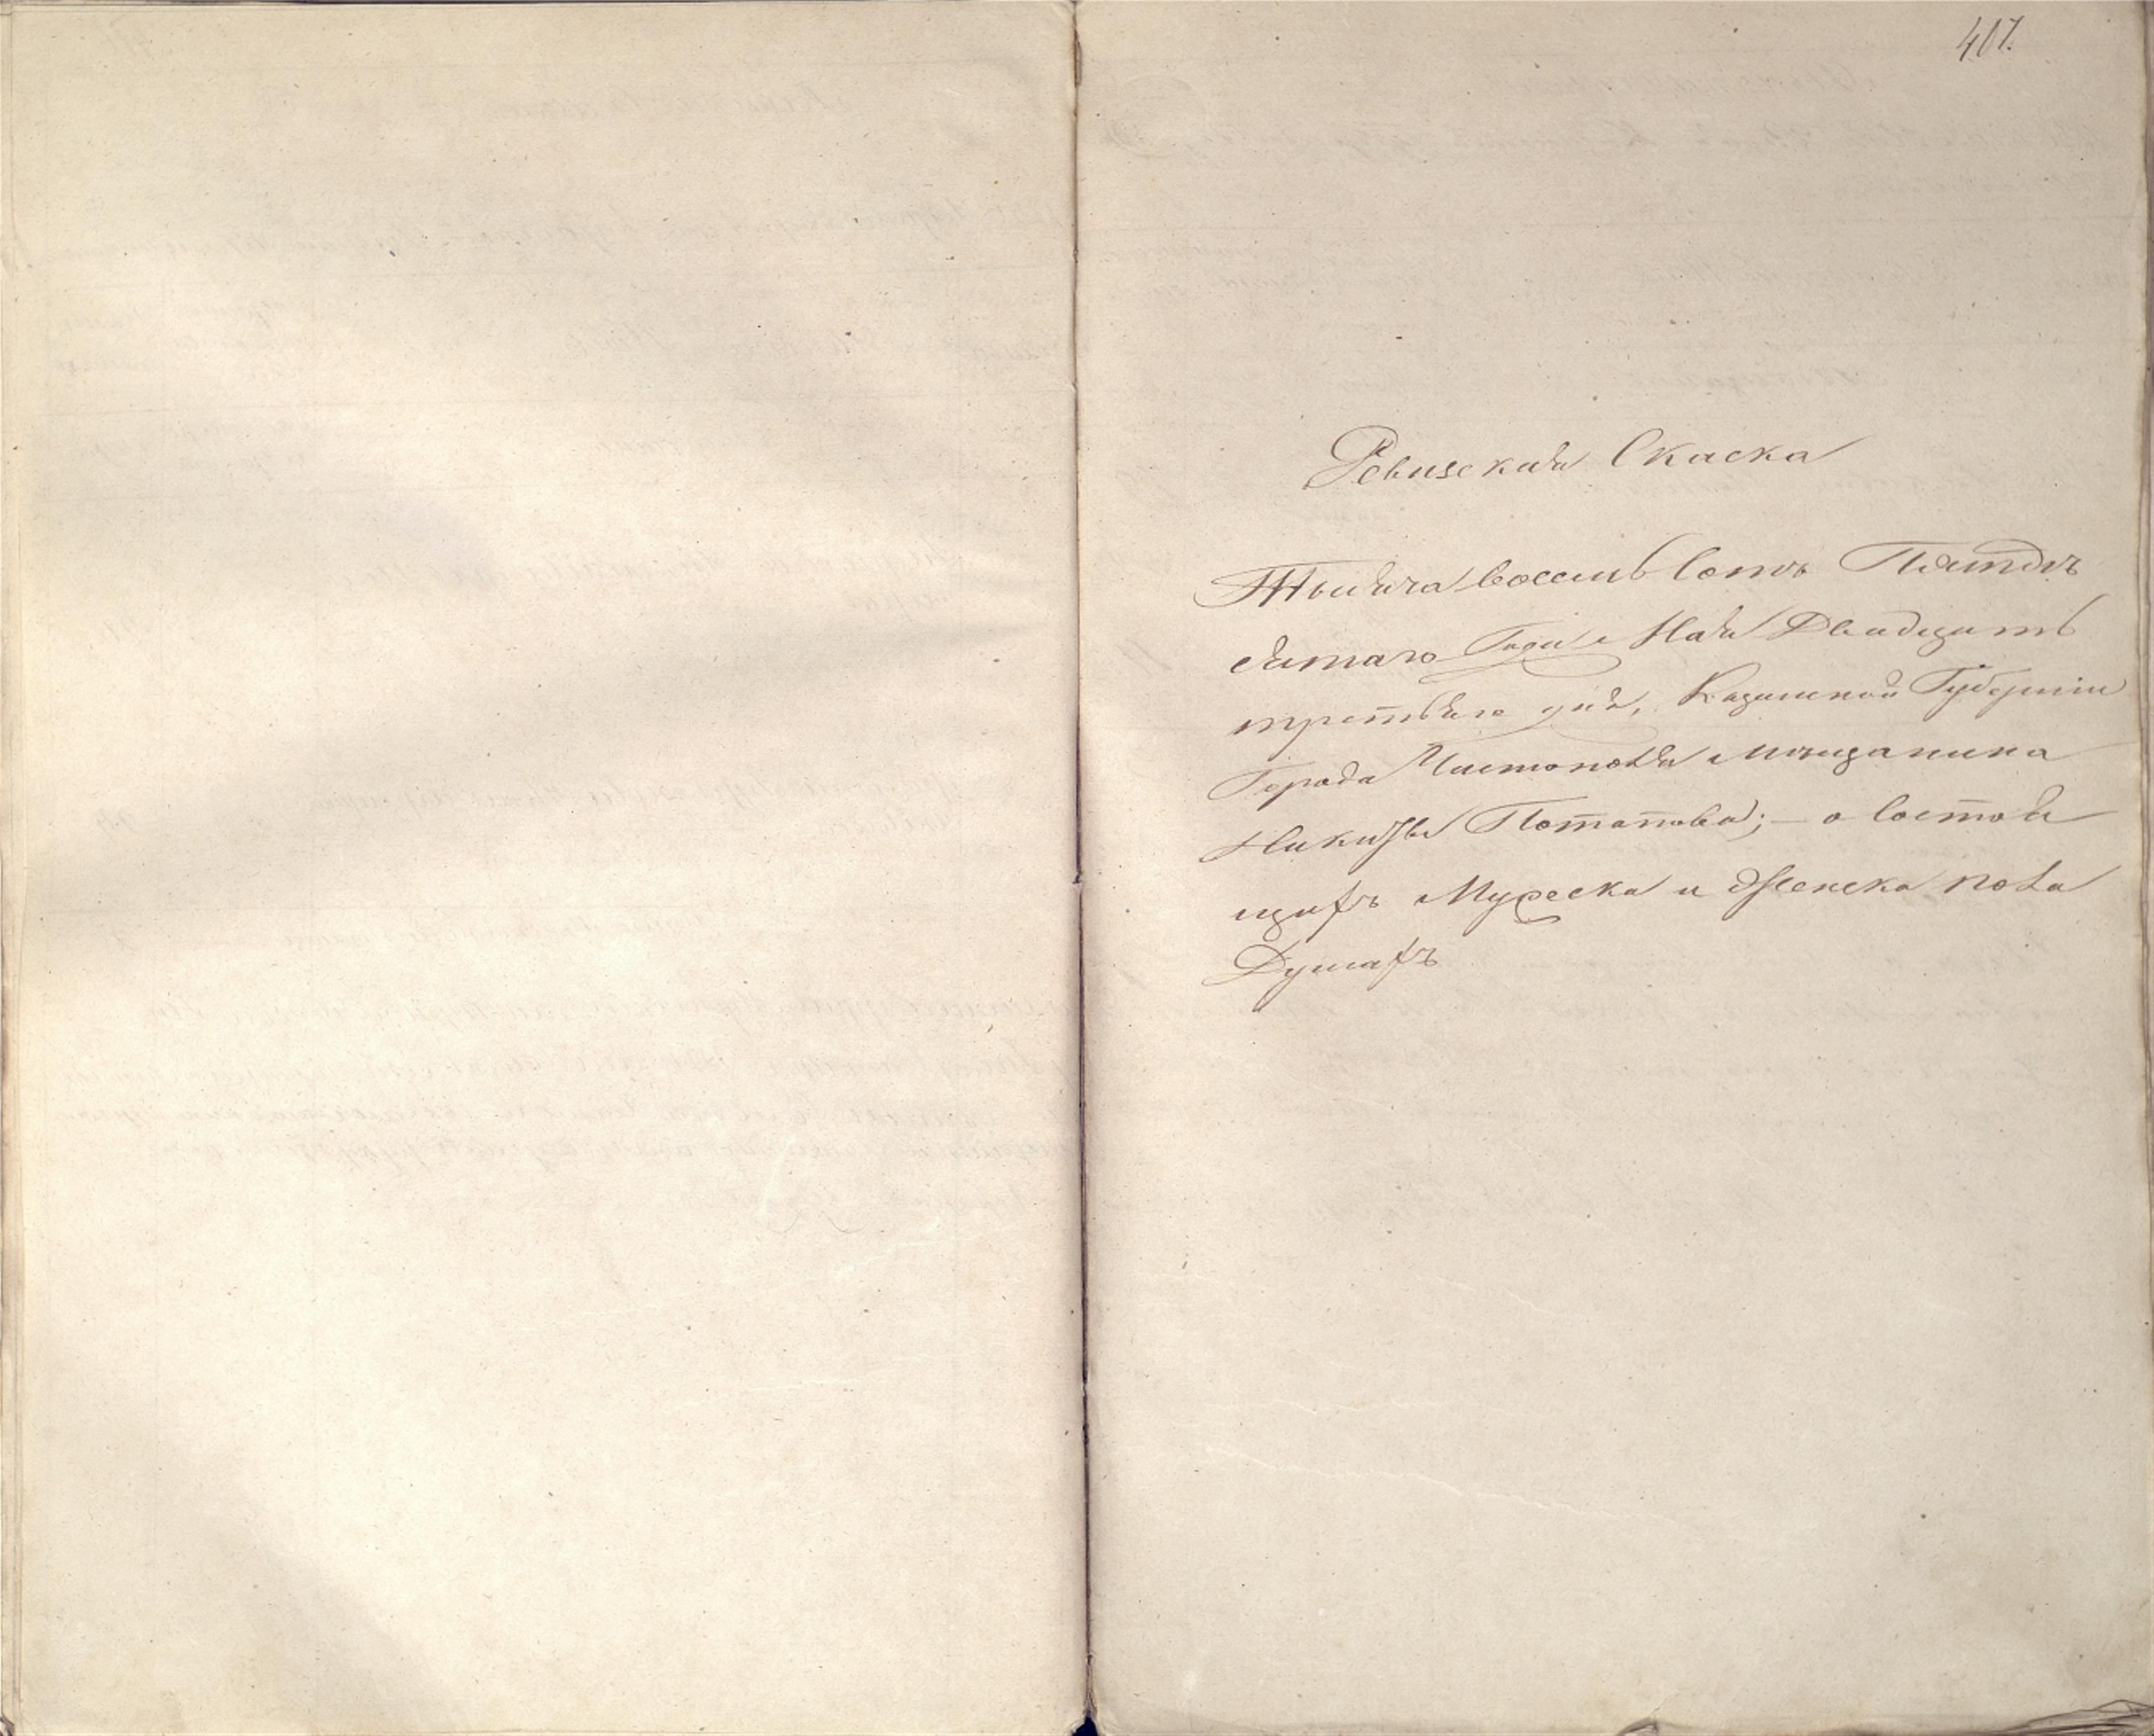 407.
Ревизская Скаска
Тысяча восемь сотъ Пятьде
сятаго Года Мая Двадцать
третьяго дня, Казанской Губернии
Города Чистополя Мещанина
Никиты Потапова; – о состоя
щихъ Мужеска и Женска пола
Душахъ